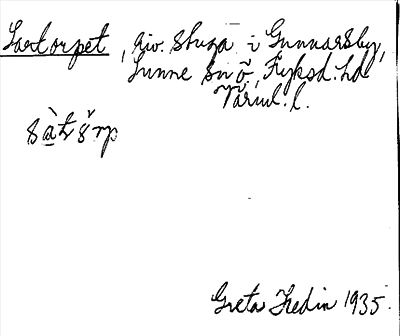 Saxtorpet, riv. stuga i Gunnarsby,
Sunne sn ö, Fryksd. hd
Värml. l.
Greta Hedin 1935.